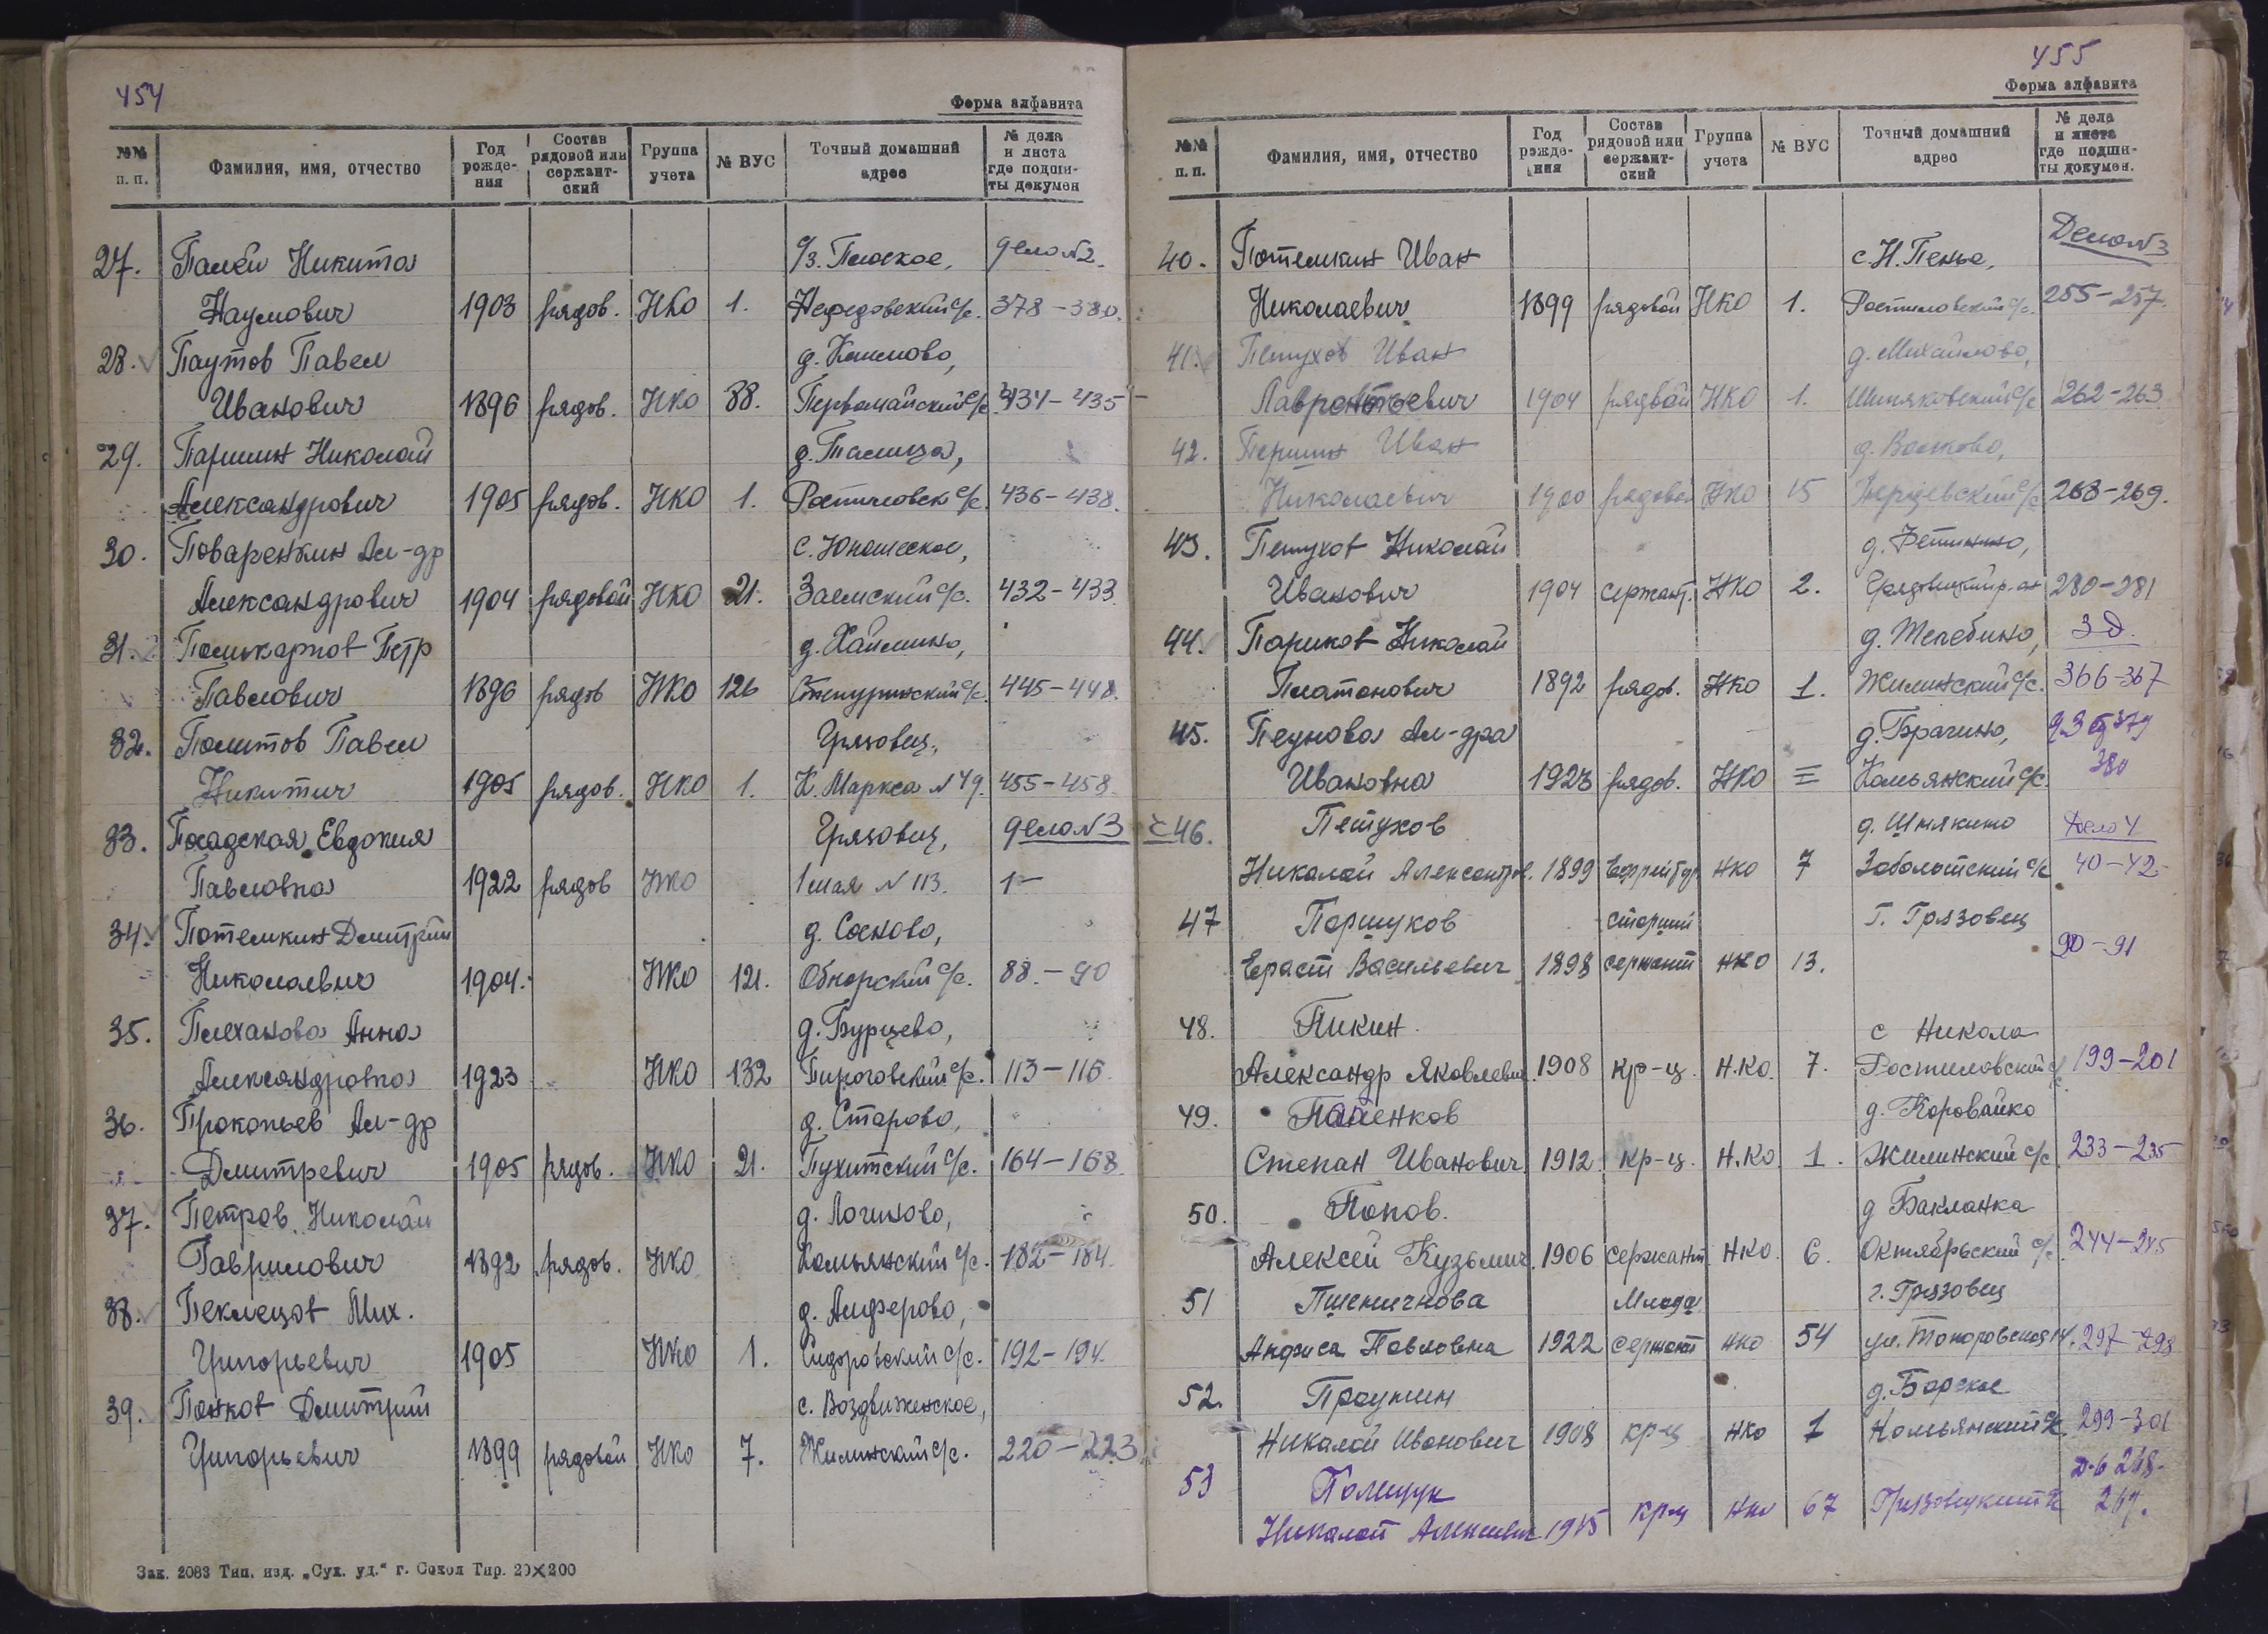 454
Форма алфавита
№№ п. п. Фамилия, имя, отчество Год рожде-ния Состав рядовой или сержант-ский Группа учета № ВУС Точный домашний адрес № дела и листа где подши-ты докумен
27. Палей Никита с/з. Плоское, дело №2.
Наумович 1903 рядов. НКО 1. Нефедовский с/с. 378-380.
28. Паутов Павел д.
Иванович 1896 рядов. НКО 88. Первомайский с/с 434-435
29. Паршин Николай д. Талица,
Александрович 1905 рядов. НКО 1. Ростиловск с/с. 436-438.
30. Поваренкин Ал-др с. Юношеское,
Александрович 1904 рядовой НКО 21. Заемский с/с. 432-433.
31. Поликарпов Петр д.
Павлович 1896 рядов НКО 126 Степуринский с/с. 445-448.
32. Политов Павел Грязовец,
Никитич 1905 рядов. НКО 1. К. Маркса № 49. 455-458.
33. Посадская Евдокия Грязовец, дело №3
Павловна 1922 рядов НКО 1 мая № 113. 1-
34. Потемкин Дмитрий д. Сосново,
Николаевич 1904. НКО 121. Обнорский с/с. 88.-90
35. Плеханова Анна д. Бурцево,
Александровна 1923 НКО 132 Пироговский с/с. 113-116.
36. Прокопьев Ал-др д. Старово,
Дмитревич 1905 рядов. НКО 21. Пухитский с/с. 164-168.
37. Петров Николай д. Логиново,
Гаврилович 1892 рядов. НКО Комьянский с/с. 182-184.
38. Пеклецов Мих. д. Алферово,
Григорьевич 1905 НКО 1. Сидоровский с/с. 192-194.
39. Понков Дмитрий с. Воздвиженское,
Григорьевич 1899 рядовой НКО 7. Жилинский с/с. 220-223
Зак. 2083 Тип. изд. „Сух. уд.“ г. Сокол Тир. 20×200
455
Форма алфавита
№№ п. п. Фамилия, имя, отчество Год рожде-ния Состав рядовой или сержант-ский Группа учета № ВУС Точный домашний адрес № дела и листа где подши-ты докумен.
40. Потемкин Иван с. Н. Пенье, Дело №3
Николаевич 1899 рядовой НКО 1. Ростиловский с/с. 255-257.
41. Петухов Иван д. Михайлово,
Лаврентьевич 1904 рядвой НКО 1. Шепяковский с/с 262-263
42. Першин Иван д. Волково,
Николаевич 1900 рядовой НКО 15 с/с 268-269.
43. Петухов Николай д. Фетинино,
Иванович 1904 сержант. НКО 2. Грязовецкий р-он 280-281
44. Париков Николай д. Жлебино, 3 д.
Платонович 1892 рядов. НКО 1. Жилинский с/с. 366-367
45. Пеунова Ал-дра д. Брагино, д 3 379
Ивановна 1923 рядов. НКО = Комьянский с/с. 380
с 46. Петухов д. Шнякино Дело 4
Николай Александров. 1899 Ефрейтор НКО 7 Заболотский с/с 40-42
47 Паршуков старший Г. Грязовец
Ераст Васильевич 1898 сержант НКО 13. 90-91
48. Пикин. с Никола
Александр Яковлевич. 1908 кр-ц. Н.КО. 7. Ростиловский с/с. 199-201
49. Папенков д. Коровайко
Степан Иванович. 1912. кр-ц. Н.КО 1. Жилинский с/с 233-235
50. Попов. д Бакланка
Алексей Кузьмич. 1906 сержант. НКО. 6. Октябрьский с/с. 244-245
51 Пшеничнова Млада г. Грязовец
Анфиса Павловна 1922 сержант НКО 54 ул. Топоровская 14. 297-298
52. Праутин д. Борское
Николай Иванович 1908 кр-ц НКО 1 Комьянский с/с. 299-301
53 Полищук Д-6 268-
Николай Алексеевич 1915 кр-ц НКО 67 Грязовецкий 269.